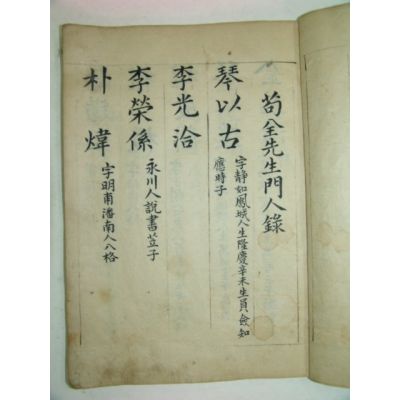 苟全先生門人錄
琴以古
字静如鳳城人生隆慶辛未生員僉知
應時子
李光洽
李榮係
永川人說書苙子
朴煒
字明甫潘南人八格